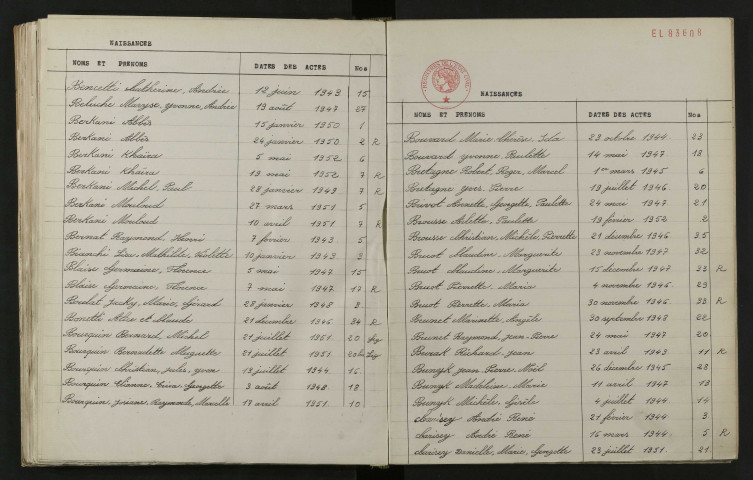 EL 83608
NAISSANCES
NOMS ET PRENOMS DATES DES ACTES Nos
Bencetti Catherine, Andrée 13 juin 1943 15
Beluche Maryse, Yvonne, Andrée 19 août 1947 27
Berkani Abbis 15 janvier 1950 1
Berkani Abbis 24 janvier 1950 2 R
Berkani Khaïra 5 mai 1952 6
Berkani Khaïra 13 mai 1952 7 R
Berkani Michel, Paul 28 janvier 1949 7 R
Berkani Mouloud 27 mars 1951 5
Berkani Mouloud 10 avril 1951 7 R
Bernat Raymond, Henri 7 février 1943 5
Bianchi Lisa, Mathilde, Violette 10 janvier 1943 2
Blaise Germaine, Florence 5 mai 1947 15
Blaise Germaine, Florence 7 mai 1947 17 R
Boulet Jacky, Marie, Gérard 28 janvier 1948 3
Bonetti Alex et Claude 21 décembre 1946 34 R
Bourquin Bernard, Michel 21 juillet 1951 20
Bourquin Bernadette Huguette 21 juillet 1951 20 bis
Bourquin Christian, Jules, Yvon 19 juillet 1944 16
Bourquin Elianne, Georgette 3 août 1948 18
Bourquin, Josiane, Raymonde, Marcelle 17 avril 1951 10
NAISSANCES
NOMS ET PRENOMS DATES DES ACTES Nos
Bouvard Marie Thérèse, Lila 29 octobre 1944 23
Bouvard Yvonne, Paulette 14 mai 1947 18
Bretagne Robert, Roger, Marcel 1er mars 1945 6
Bretagne Yves, Pierre 19 juillet 1946 20
Brivot Annette, Georgette, Paulette 24 mai 1947 21
Brousse Arlette, Paulette 19 février 1952 2
Brousse Christian, Michèle, Pierrette 21 décembre 1946 35
Bruot Claudine, Marguerite 23 novembre 1947 32
Bruot Claudine, Marguerite 15 décembre 1947 33 R
Bruot Pierrette, Maria 4 novembre 1946 29
Bruot Pierrette, Maria 30 novembre 1946 33 R
Brunet Marinette, Angèle 30 septembre 1948 22
Brunet Raymond, Jean-Pierre 24 mai 1947 20
Burak Richard, Jean 23 avril 1943 11 R
Bunyk Jean, Pierre, Noël 26 décembre 1945 28
Bunyk Madeleine, Marie 11 avril 1947 13
Bunyk Michèle, Gisèle 4 juillet 1944 14
Charisey André René 21 février 1944 3
Charisey André René 16 mars 1944 5 R
Charisey Danielle, Marie, Georgette 23 juillet 1951 21